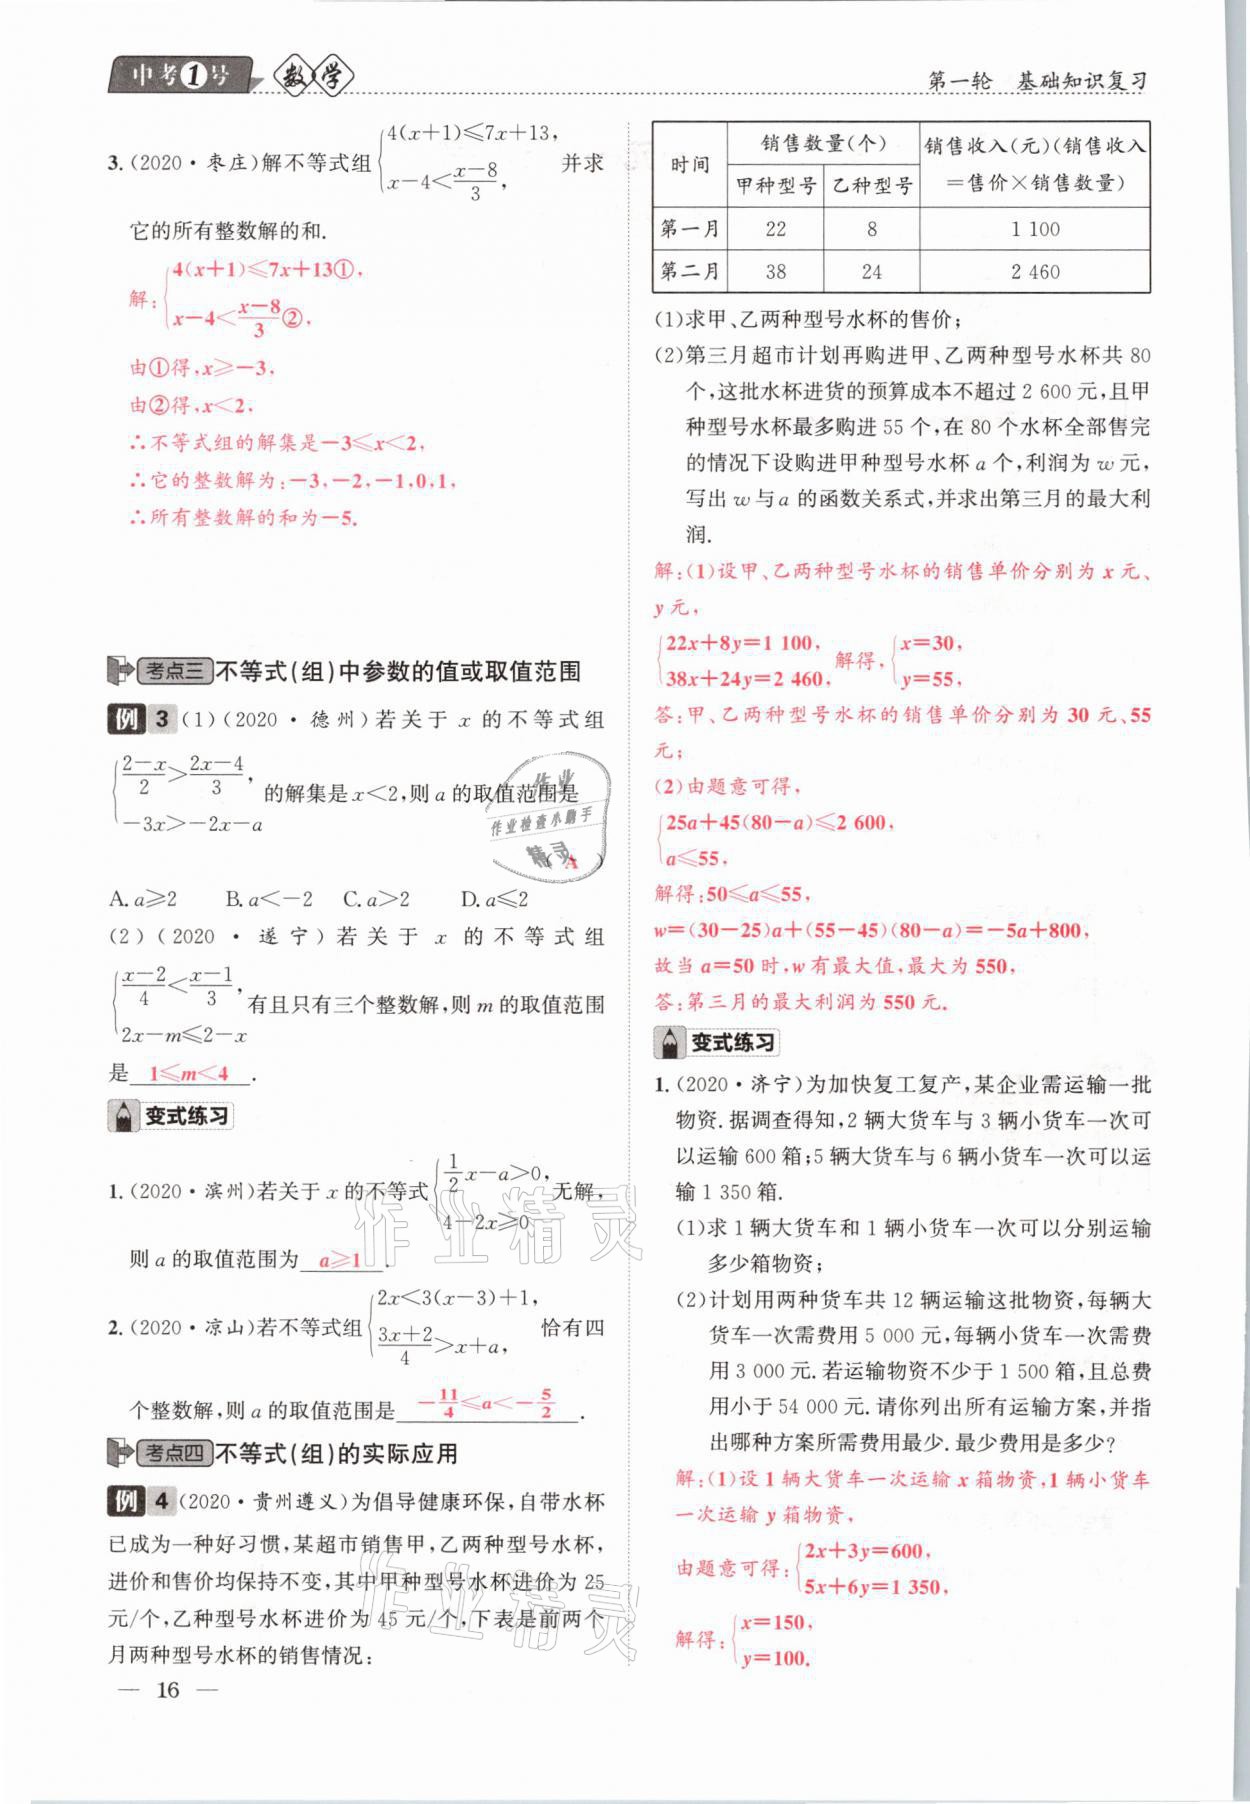 中考1号 数学
第一轮 基础知识复习
3.(2020·枣庄)解不等式组{4(x+1)≤7x+13, x-4<(x-8)/3, 并求
它的所有整数解的和.
解:{4(x+1)≤7x+13①, x-4<(x-8)/3②,
由①得,x≥-3,
由②得,x<2,
∴不等式组的解集是-3≤x<2,
∴它的整数解为:-3,-2,-1,0,1,
∴所有整数解的和为-5.
考点三 不等式(组)中参数的值或取值范围
例 3 (1)(2020·德州)若关于 x 的不等式组
{(2-x)/2>(2x-4)/3, -3x>-2x-a 的解集是x<2,则a的取值范围是
( A )
A. a≥2 B. a<-2 C. a>2 D. a≤2
(2)(2020·遂宁)若关于 x 的不等式组
{(x-2)/4<(x-1)/3, 2x-m≤2-x 有且只有三个整数解,则m的取值范围
是 1≤m<4 .
变式练习
1.(2020·滨州)若关于x的不等式{1/2x-a>0, 4-2x≥0 无解,
则a的取值范围为 a≥1 .
2.(2020·凉山)若不等式组{2x<3(x-3)+1, (3x+2)/4>x+a, 恰有四
个整数解,则a的取值范围是 -11/4≤a<-5/2 .
考点四 不等式(组)的实际应用
例 4 (2020·贵州遵义)为倡导健康环保,自带水杯
已成为一种好习惯,某超市销售甲,乙两种型号水杯,
进价和售价均保持不变,其中甲种型号水杯进价为25
元/个,乙种型号水杯进价为45元/个,下表是前两个
月两种型号水杯的销售情况:
— 16 —
时间 销售数量(个) 销售收入(元)(销售收入
甲种型号 乙种型号 =售价×销售数量)
第一月 22 8 1 100
第二月 38 24 2 460
(1)求甲、乙两种型号水杯的售价;
(2)第三月超市计划再购进甲、乙两种型号水杯共80
个,这批水杯进货的预算成本不超过2 600元,且甲
种型号水杯最多购进55个,在80个水杯全部售完
的情况下设购进甲种型号水杯a个,利润为w元,
写出w与a的函数关系式,并求出第三月的最大利
润.
解:(1)设甲、乙两种型号水杯的销售单价分别为x元、
y元,
{22x+8y=1 100, 38x+24y=2 460, 解得,{x=30, y=55,
答:甲、乙两种型号水杯的销售单价分别为30元、55
元;
(2)由题意可得,
{25a+45(80-a)≤2 600, a≤55,
解得:50≤a≤55,
w=(30-25)a+(55-45)(80-a)=-5a+800,
故当a=50时,w有最大值,最大为550,
答:第三月的最大利润为550元.
变式练习
1.(2020·济宁)为加快复工复产,某企业需运输一批
物资.据调查得知,2辆大货车与3辆小货车一次可
以运输600箱;5辆大货车与6辆小货车一次可以运
输1 350箱.
(1)求1辆大货车和1辆小货车一次可以分别运输
多少箱物资;
(2)计划用两种货车共12辆运输这批物资,每辆大
货车一次需费用5 000元,每辆小货车一次需费
用3 000元.若运输物资不少于1 500箱,且总费
用小于54 000元.请你列出所有运输方案,并指
出哪种方案所需费用最少.最少费用是多少?
解:(1)设1辆大货车一次运输x箱物资,1辆小货车
一次运输y箱物资,
由题意可得:{2x+3y=600, 5x+6y=1 350,
解得:{x=150, y=100.
作业
作业检查小助手
精灵
作业精灵
作业精灵